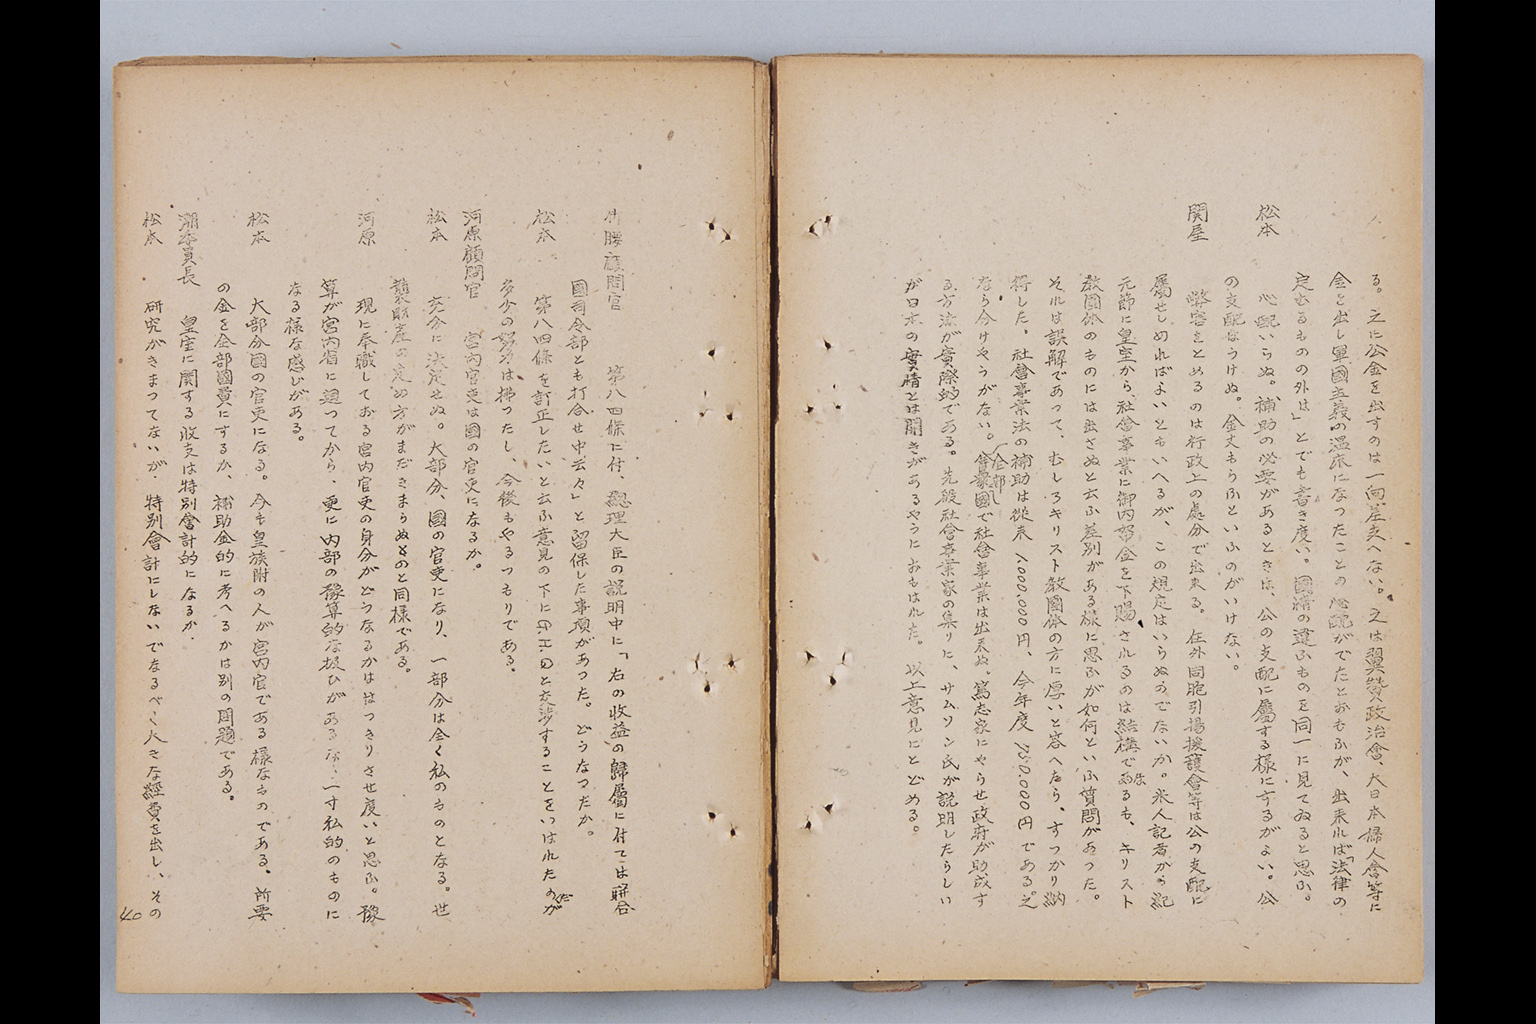 る。之に公金を出すのは一向差支へない。之は翼賛政治會、大日本婦人會等に
金を出し軍國主義の温床になったことの心配がでたとおもふが、出来れば「法律の
定むるものの外は」とでも書き度い。國情の違ふものを同一に見てゐると思ふ。
松本　心配いらぬ。補助の必要があるときは、公の支配に屬する様にするがよい。公
の支配はうけぬ。金丈もらふといふのがいけない。
関屋　弊害をとめるのは行政上の處分で出来る。在外同胞引揚援護會等は公の支配に
屬せしめればよいともいへるが、この規定はいらぬのでないか。米人記者から紀
元節に皇室から社會事業に御内帑金を下賜されるのは結構であるも、キリスト
教團体のものには出さぬと云ふ差別がある様に思ふが如何といふ質問があった。
それは誤解であって、むしろキリスト教團体の方に厚いと答へたら、すっかり納
得した。社會事業法の補助は従来 1,000,000円、今年度 250,000円である。之
なら分けやうがない。全部國で社會事業は出来ぬ。篤志家にやらせ政府が助成す
る方法が實際的である。先般社會事業家の集りに、サムソン氏が説明したらしい
が日本の實情とは開きがあるやうにおもはれた。以上意見にとどめる。
竹腰顧問官　第八四條に付、總理大臣の説明中に「右の收益の歸屬に付ては聯合
國司令部とも打合せ中云々」と留保した事項があった。どうなつたか。
松本　第八四條を訂正したいと云ふ意見の下にG.H.Qと交渉することをいはれたのだが
多少の努力は拂つたし、今後もやるつもりである。
河原顧問官　宮内官吏は國の官吏になるか。
松本　充分に決定せぬ。大部分、國の官吏になり、一部分は全く私のものとなる。世
襲財産の定め方がまだきまらぬのと同様である。
河原　現に奉職しておる宮内官吏の身分がどうなるかははつきりさせ度いと思ふ。豫
算が宮内省に廻つてから、更に内部の豫算的な扱ひがある が、一寸私的のものに
なる様な感じがある。
松本　大部分國の官吏になる。今も皇族附の人が宮内官である様なものである、所要
の金を全部國費にするか、補助金的に考へるかは別の問題である。
潮委員長　皇室に関する收支は特別會計的になるか。
松本　研究がきまつてないが、特別會計にしないでなるべく大きな經費を出し、その
40